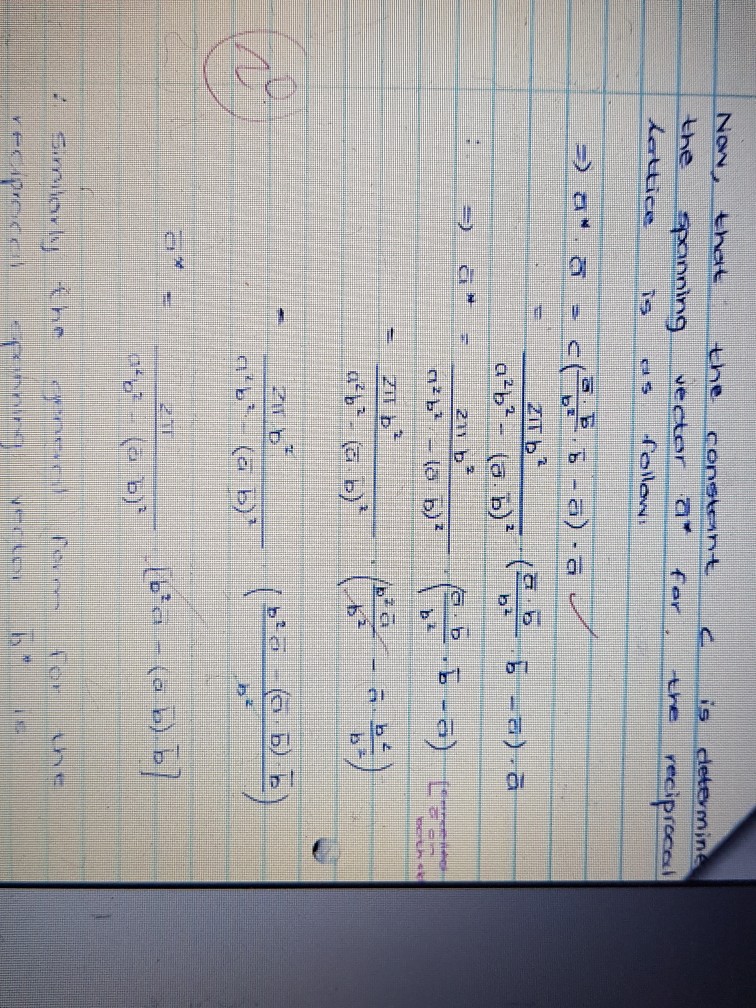 Now, that the constant c is determine
the spanning vector a̅* for the reciprocal
lattice is as follow.
=) a̅* . a̅ = c ( (a̅ . b̅)/b² . b̅ - a̅ ) . a̅ ✓
= 2π b² / (a²b² - (a̅ . b̅)²) . ( (a̅ . b̅)/b² . b̅ - a̅ ) . a̅
∴ =) a̅* = 2π b² / (a²b² - (a̅ b̅)²) . ( (a̅ . b̅)/b² . b̅ - a̅ ) [ a̅ on both
= 2π b² / (a²b² - (a̅ b̅)²) . ( b² a̅ / b² - a̅ . b²/b² )
= 2π b² / (a²b² - (a̅ b̅)²) ( (b² a̅ - (a̅ . b̅) . b̅) / b² )
a̅* = 2π / (a²b² - (a̅ b̅)²) . [b² a̅ - (a̅ b̅) b̅]
: Similarly the general form for the
reciprocal spanning vector b̅* is